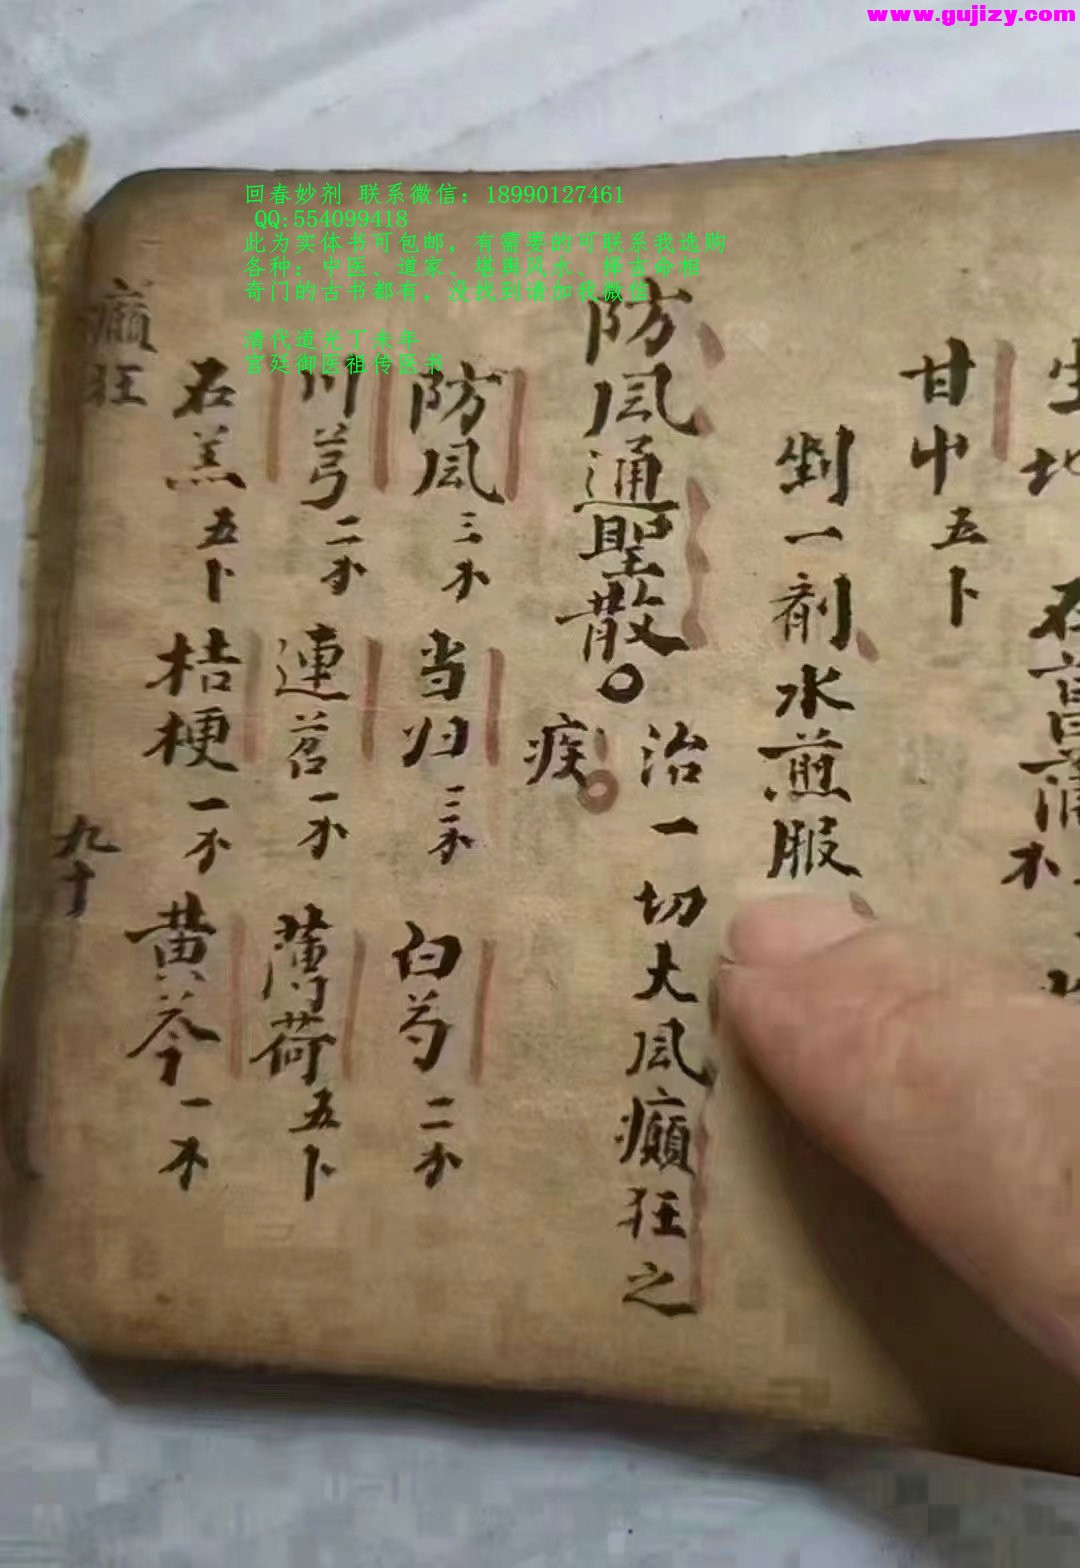 www.gujizy.com
回春妙剂 联系微信：18990127461
QQ:554099418
此为实体书可包邮，有需要的可联系我选购
各种：中医、道家、堪舆风水、择吉命相
奇门的古书都有，没找到请加我微信
清代道光丁未年
宫廷御医祖传医书
生地
石菖蒲
甘中五卜
剉一剂水煎服
防風通聖散。治一切大風癲狂之
疾。
防風三木 当归三木 白芍二木
川芎二木 連苕一木 薄荷五卜
石羔五卜 桔梗一木 黄芩一木
癲狂
九十